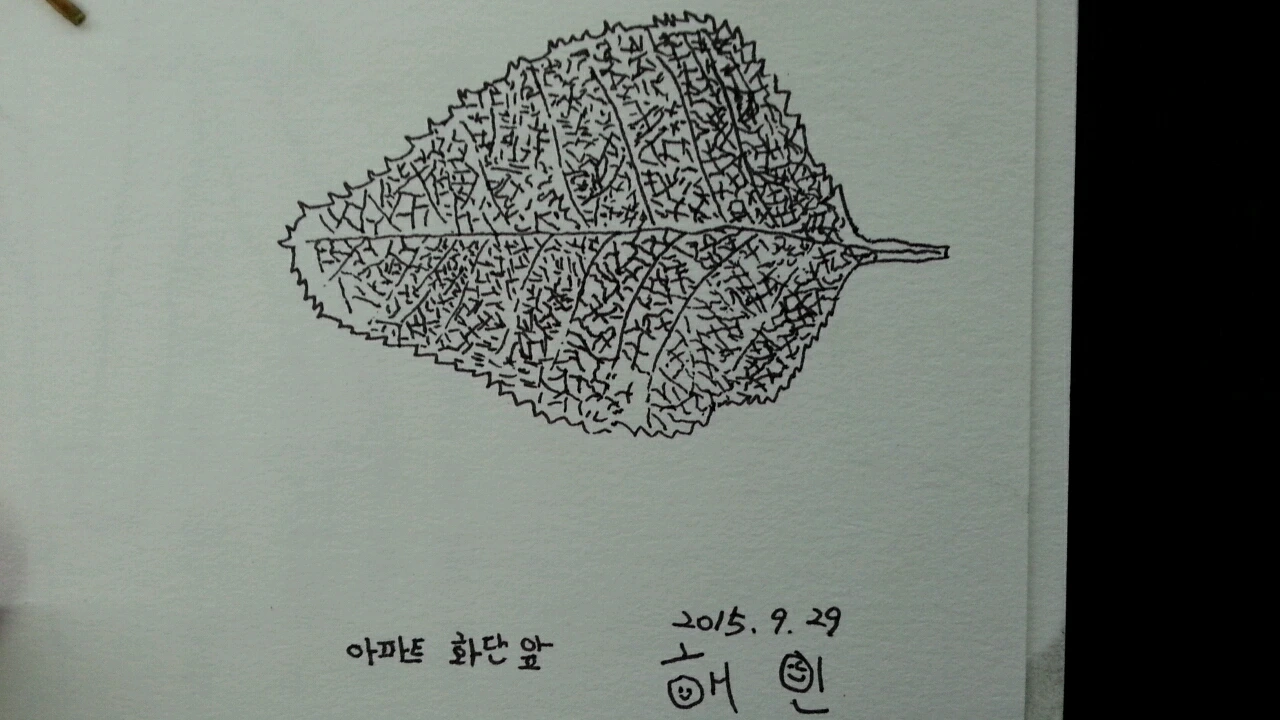 2015. 9. 29
아파트 화단 앞
해인